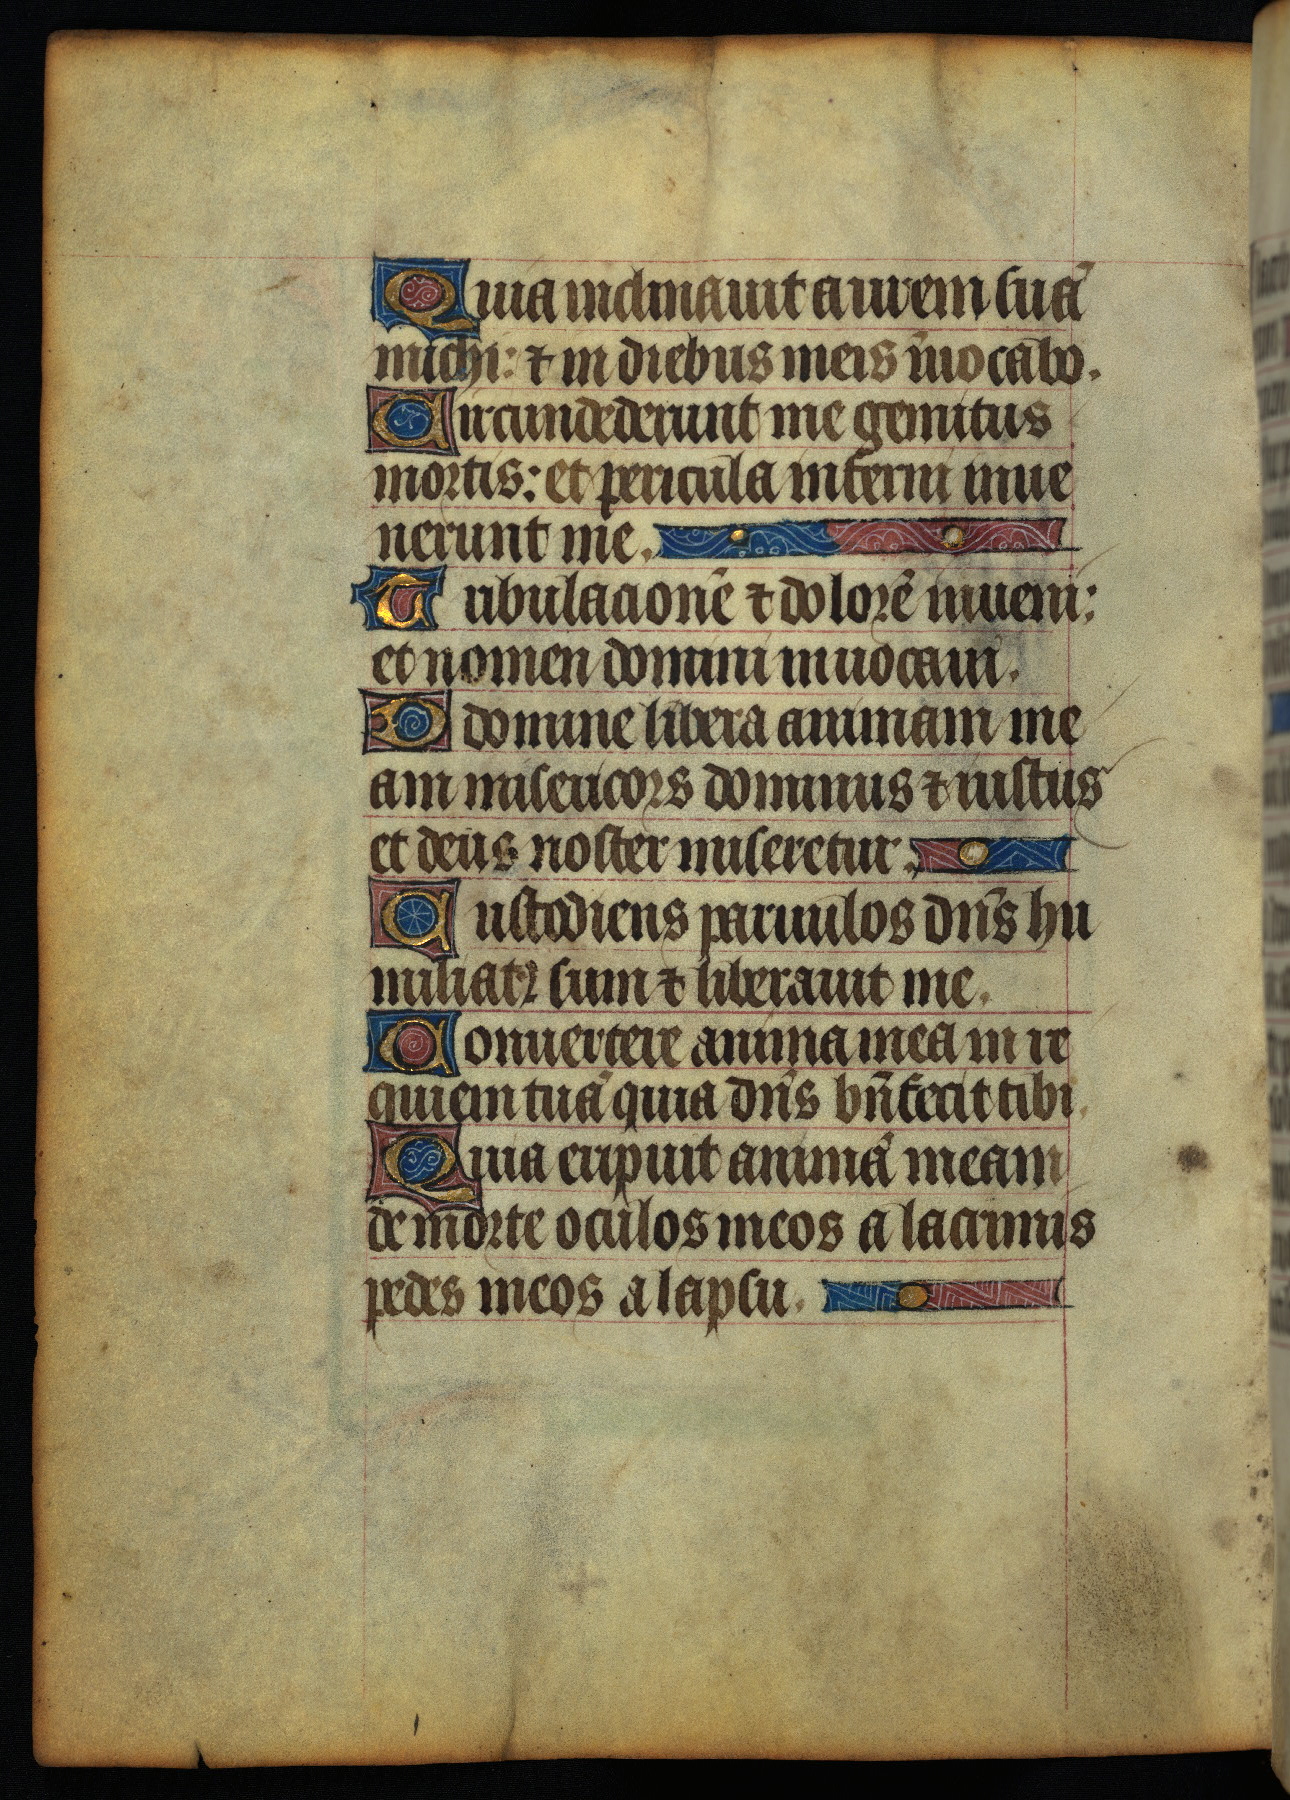 Quia inclinauit aurem suā
michi: ⁊ in diebus meis īuocabo.
Circundederunt me gemitus
mortis: et pericula inferni inue
nerunt me.
Tribulacionē ⁊ dolorē inueni:
et nomen domini inuocaui.
O domine libera animam me
am misericors dominus ⁊ iustus
et deus noster miseretur.
Custodiens paruulos dn̄s hu
miliatꝰ sum ⁊ liberauit me.
Conuertere anima mea in re
quiem tuā quia dn̄s bn̄fecit tibi.
Quia eripuit animā meam
de morte oculos meos a lacrimis
pedes meos a lapsu.